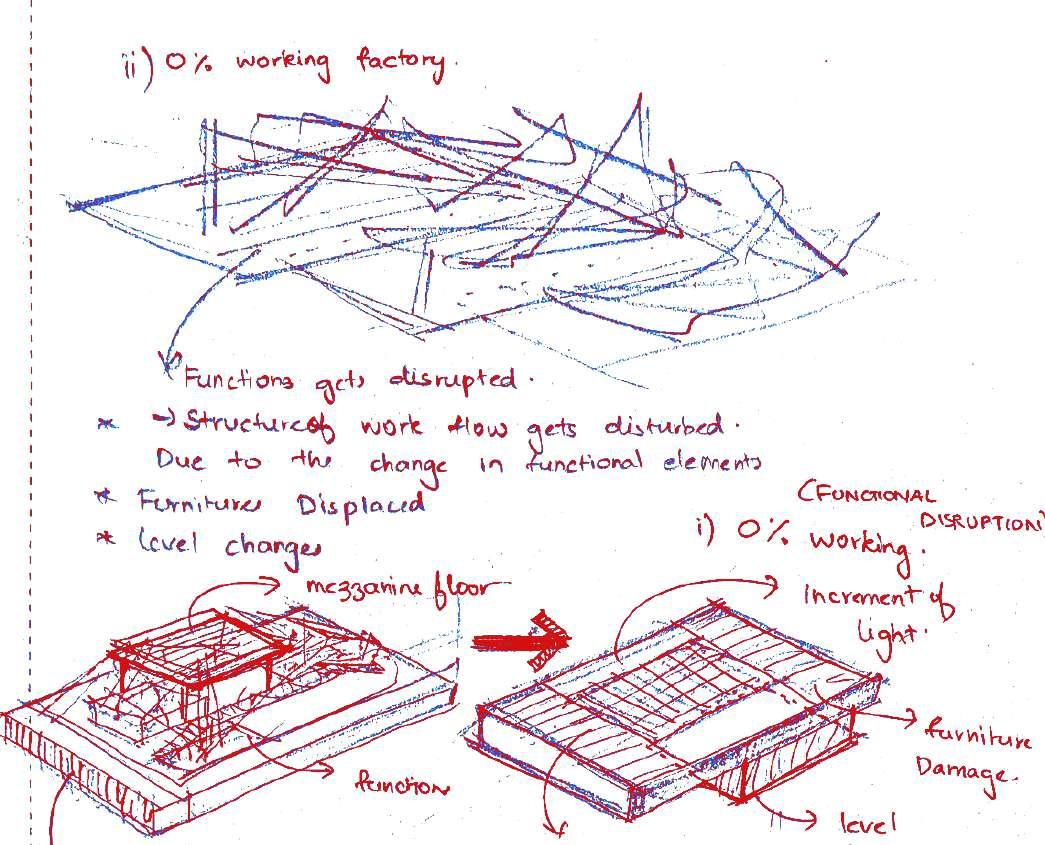 ii) 0% working factory.
Functions gets disrupted.
* → Structure of work flow gets disturbed.
Due to the change in functional elements
* Furnitures Displaced
* level changes
(FUNCTIONAL
DISRUPTION)
i) 0% working.
mezzanine floor
increment of
light.
function
furniture
Damage.
level